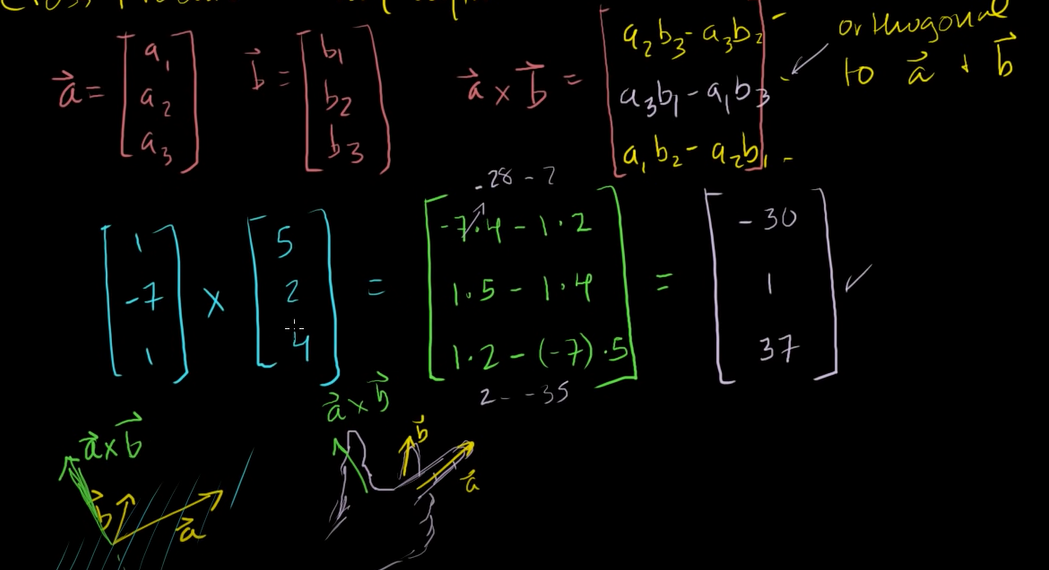 Cross Product
a⃗ = [a₁ a₂ a₃] b⃗ = [b₁ b₂ b₃] a⃗ × b⃗ = [a₂b₃ - a₃b₂ a₃b₁ - a₁b₃ a₁b₂ - a₂b₁]
orthogonal
to a⃗ + b⃗
-28 - 2
[1 -7 1] × [5 2 4] = [-7·4 - 1·2 1·5 - 1·4 1·2 - (-7)·5] = [-30 1 37]
2 - -35
a⃗ × b⃗
a⃗ × b⃗
b⃗
a⃗
b⃗
a⃗